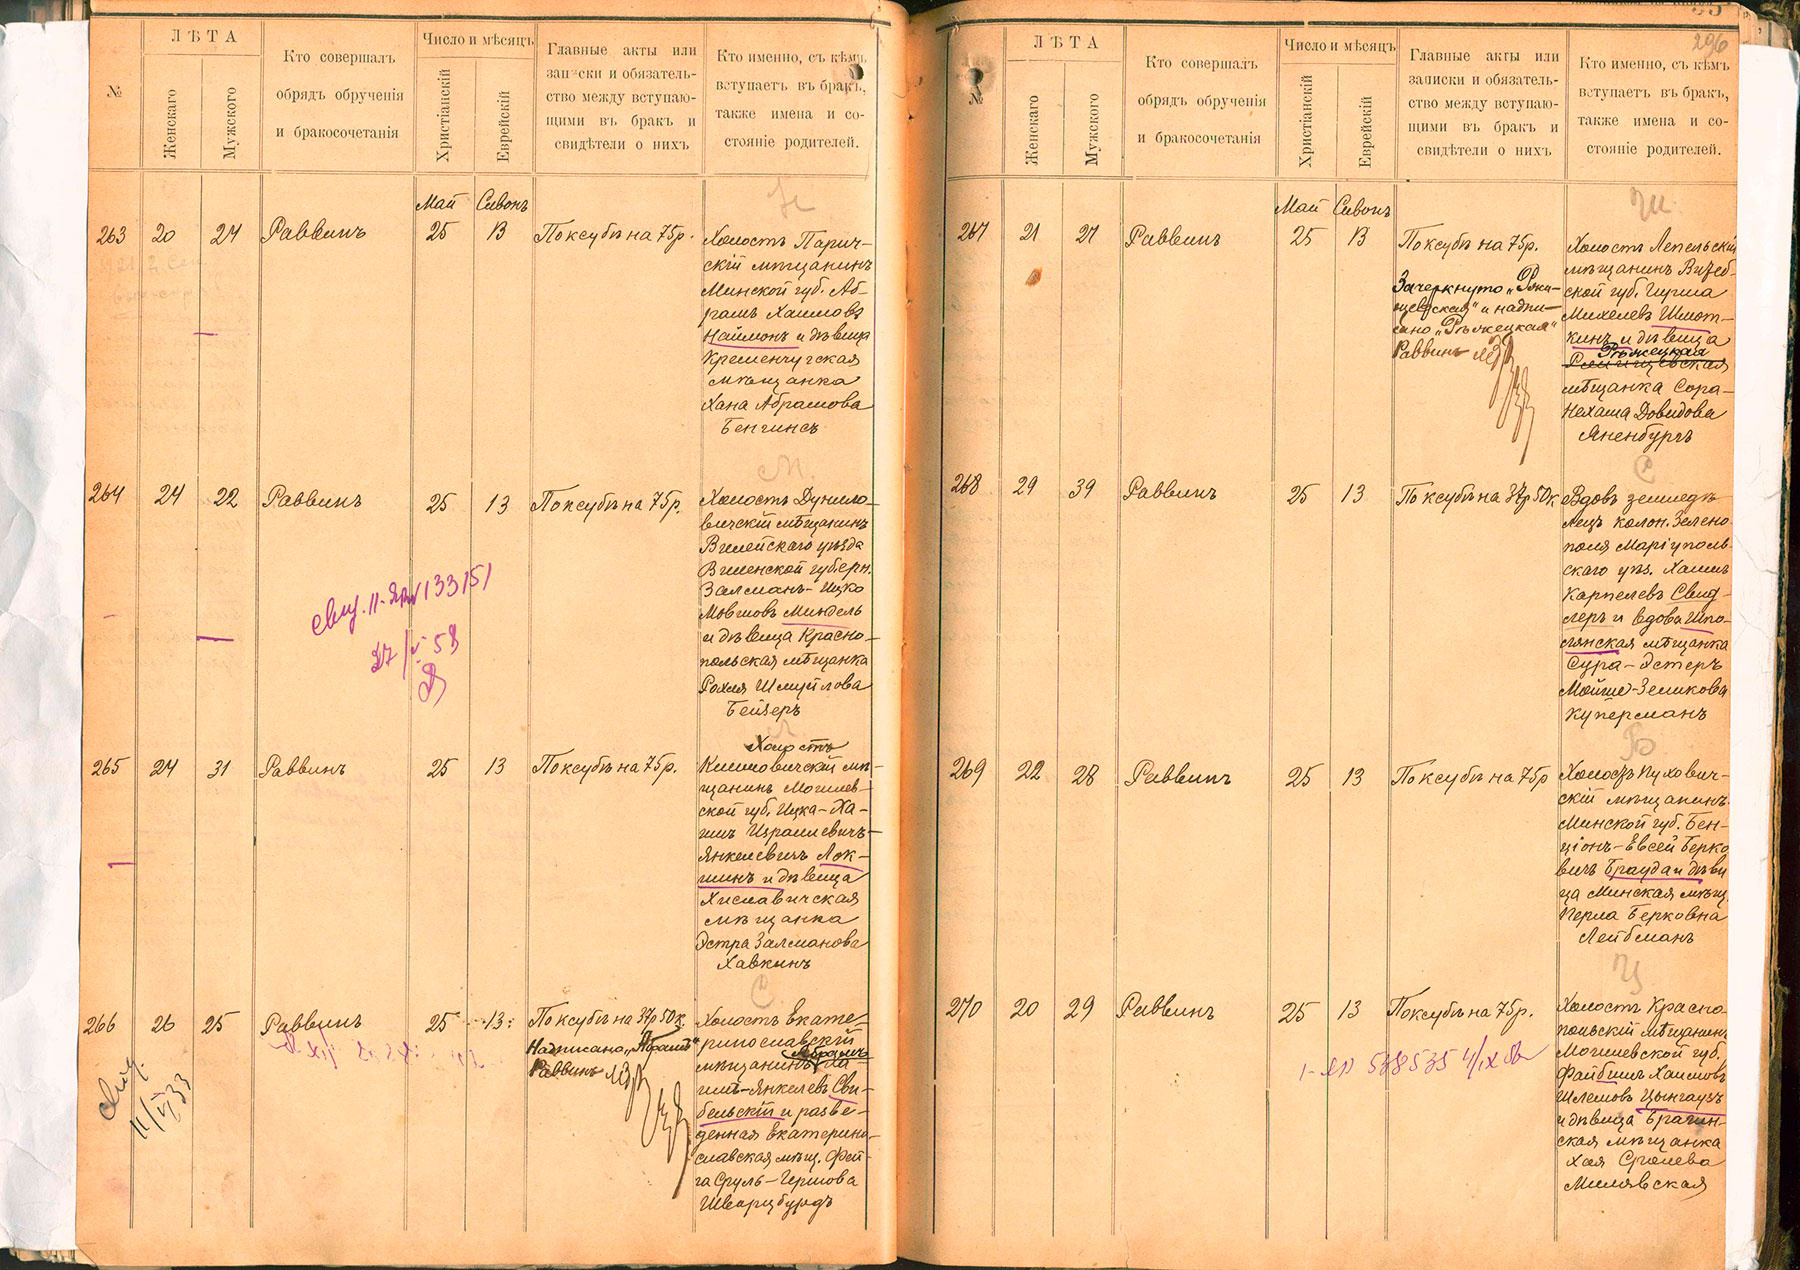 №
ЛѢТА
Женскаго
Мужского
Кто совершалъ
обрядъ обрученія
и бракосочетанія
Число и мѣсяцъ
Христіанскій
Еврейскій
Главные акты или
записки и обязатель-
ство между вступаю-
щими въ бракъ и
свидѣтели о нихъ
Кто именно, съ кѣмъ
вступаетъ въ бракъ,
также имена и со-
стояніе родителей.
Май Сивонъ
263 20 24 Раввинъ 25 13 По ксубѣ на 75р.
Холостъ Парич-
скій мѣщанинъ
Минской губ. Аб-
рамъ Хаимовъ
Наймонъ и дѣвица
Кременчугская
мѣщанка
Хана Абрамова
Бенчинъ
М
264 24 22 Раввинъ 25 13 По ксубѣ на 75р.
Холостъ Дунило-
вичскій мѣщанинъ
Вилейскаго уѣзда
Виленской губерн.
Залманъ-Ицко
Мовшовъ Миндель
и дѣвица Красно-
польская мѣщанка
Рохля Шмуйлова
Бейзеръ
27/V 58
Л
265 24 31 Раввинъ 25 13 По ксубѣ на 75р.
Холостъ
Климовичскій мѣ-
щанинъ Могилев-
ской губ. Ицка-Ха-
имъ Израилевичъ-
Янкелевичъ Лок-
шинъ и дѣвица
Хиславичская
мѣщанка
Эстра Залманова
Хавкинъ
С
266 26 25 Раввинъ 25 13 По ксубѣ на 37р 50к.
Надписано „Абрамъ"
Раввинъ
Холостъ Екате-
ринославскій
Абрамъ
мѣщанинъ Ха-
имъ-Янкелевъ Сви-
бельскій и разве-
денная Екатерино-
славская мѣщ. Фей-
га Сруль-Гершова
Шварцбурдъ
11/V 33
296
№
ЛѢТА
Женскаго
Мужского
Кто совершалъ
обрядъ обрученія
и бракосочетанія
Число и мѣсяцъ
Христіанскій
Еврейскій
Главные акты или
записки и обязатель-
ство между вступаю-
щими въ бракъ и
свидѣтели о нихъ
Кто именно, съ кѣмъ
вступаетъ въ бракъ,
также имена и со-
стояніе родителей.
Ш
Май Сивонъ
267 21 27 Раввинъ 25 13 По ксубѣ на 75р.
Зачеркнуто „Ржи-
щевская" и надпи-
сано „Рѣжецкая"
Раввинъ
Холостъ Лепельскій
мѣщанинъ Витеб-
ской губ. Гирша
Михелевъ Шмот-
кинъ и дѣвица
Рѣжецкая
мѣщанка Сора-
Нехама Довидова
Яненбургъ
С
268 29 39 Раввинъ 25 13 По ксубѣ на 37р 50к
Вдовъ земледѣ-
лецъ колон. Зелено-
поля Маріуполь-
скаго уѣз. Хаимъ
Карпелевъ Свид-
леръ и вдова Шпо-
лянская мѣщанка
Сура-Эстеръ
Мойше-Зеликова
Куперманъ
Б
269 22 28 Раввинъ 25 13 По ксубѣ на 75р
Холостъ Пухович-
скій мѣщанинъ
Минской губ. Бен-
ціонъ-Евсей Берко
вичъ Брауда и дѣви
ца Минская мѣщ.
Перла Берковна
Лейбманъ
Ц
270 20 29 Раввинъ 25 13 По ксубѣ на 75р.
Холостъ Красно-
польскій мѣщанинъ
Могилевской губ.
Файбишъ Хаимовъ
Шлемовъ Цынгаузъ
и дѣвица Брагин-
ская мѣщанка
Хая Сролева
Милявская